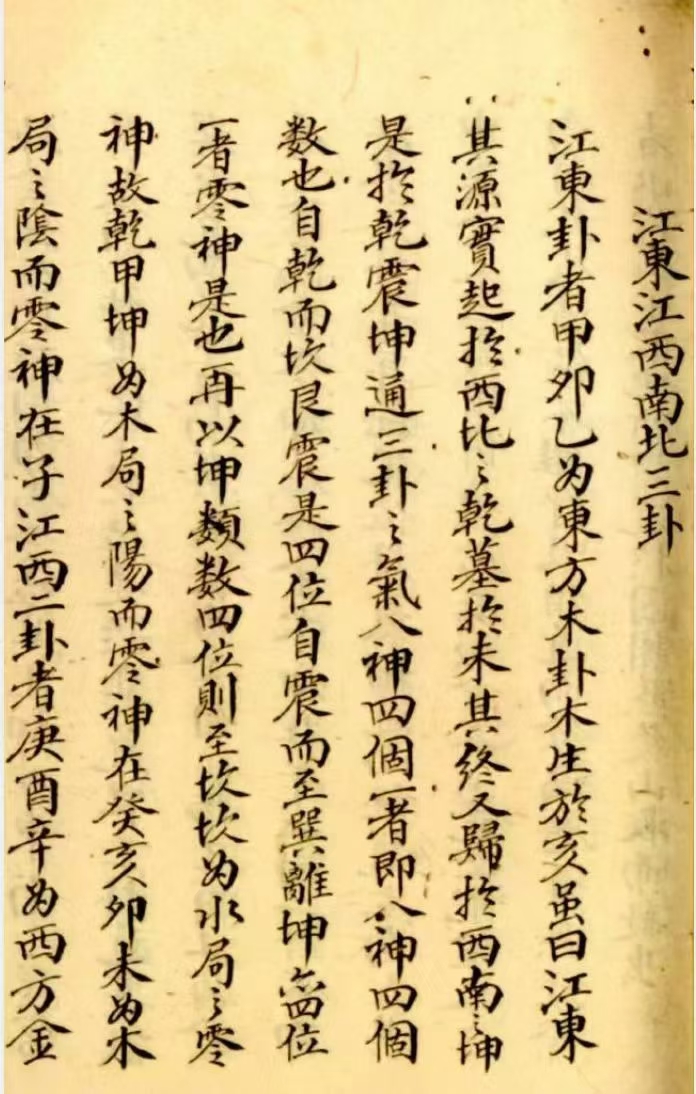 江東江西南北三卦
江東卦者甲卯乙为東方木卦木生於亥虽曰江東
其源實起扵西北之乾墓扵未其终又歸扵西南之坤
是扵乾震坤通三卦之氣八神四個一者即八神四個
数也自乾而坎艮震是四位自震而至巽離坤亦四位
一者零神是也再以坤類数四位則至坎坎为水局之零
神故乾甲坤为木局之陽而零神在癸亥卯未为木
局之陰而零神在子江西二卦者庚酉辛为西方金